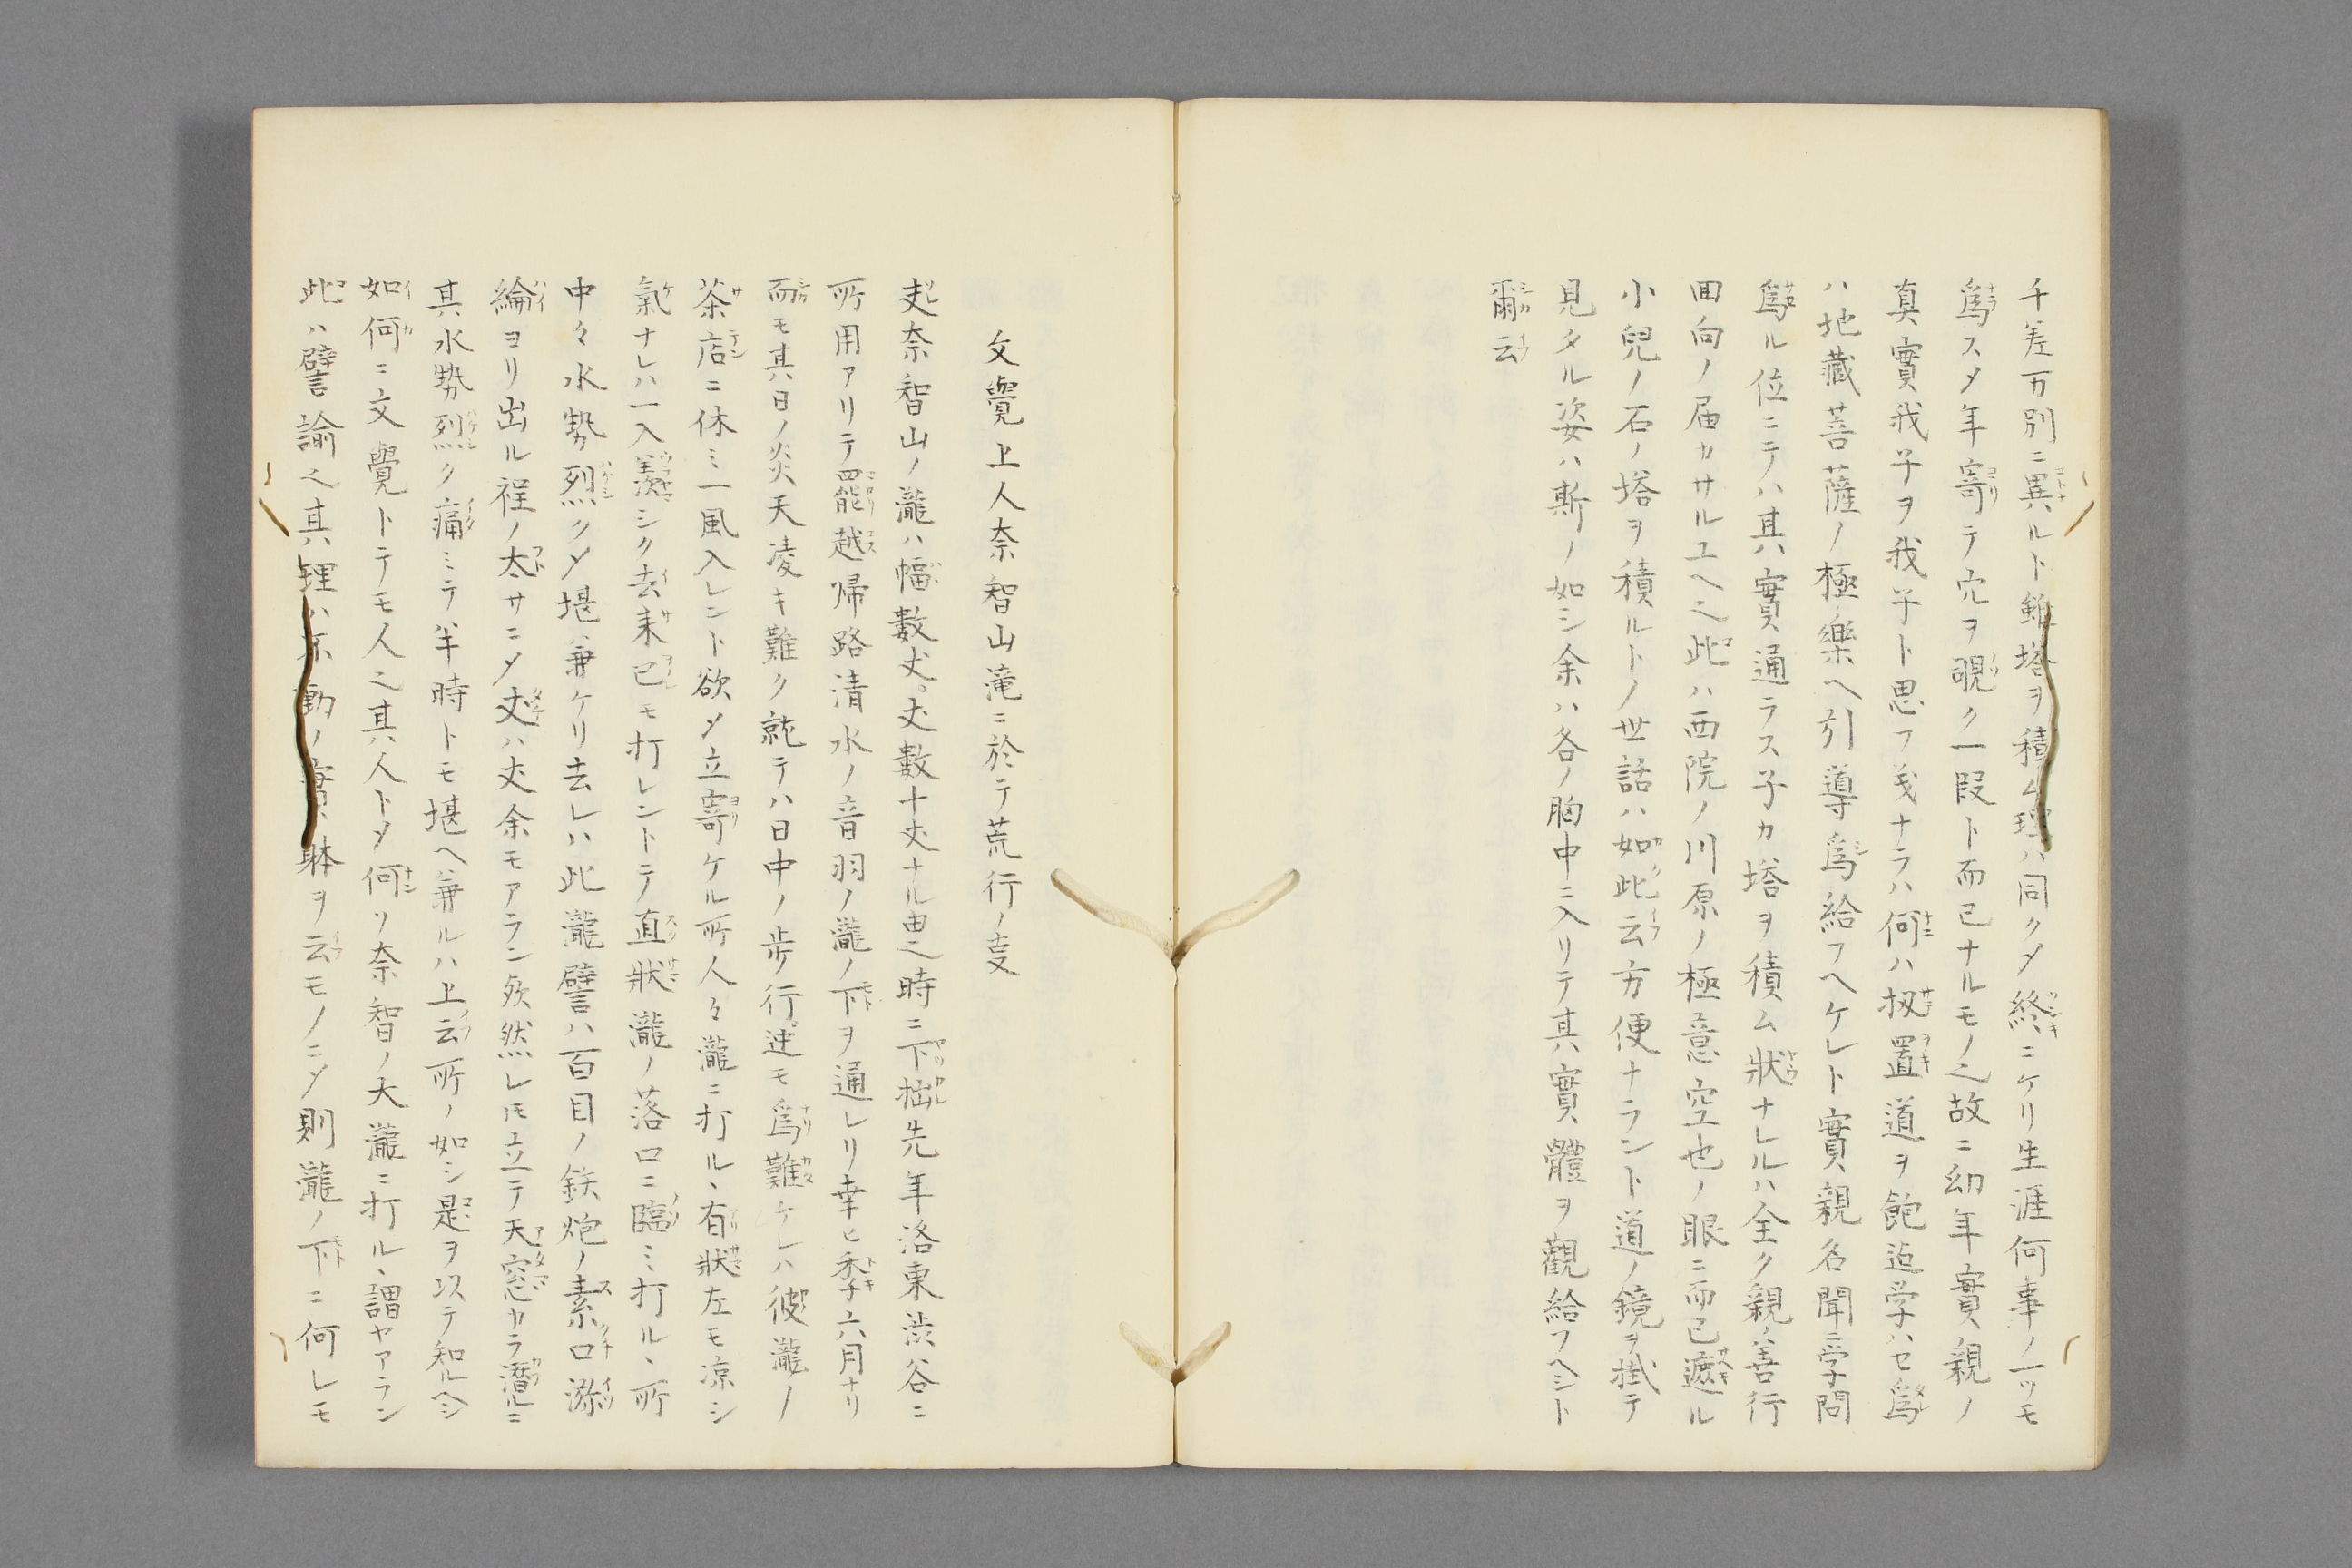 千差万別ニ異ルト雖塔ヲ積ム理ハ同クメ終ニケリ生涯何事ノ一ツモ
爲スメ年寄テ穴ヲ覗ク一叚ト而已ナルモノ之故ニ幼年實親ノ
真實我子ヲ我子ト思フ義ナラハ何ハ扨置道ヲ飽迠学ハセ爲
ハ地藏菩薩ノ極樂ヘ引導爲給フヘケレト實親名聞ニ学問
爲ル位ニテハ其實通ラス子カ塔ヲ積ム狀ナレハ全ク親ハ善行
回向ノ届カサルユヘ之此ハ西院ノ川原ノ極意空也ノ眼ニ而已遮ル
小兒ノ石ノ塔ヲ積ルトノ世話ハ如此云方便ナラント道ノ鏡ヲ掛テ
見タル姿ハ斯ノ如シ余ハ各ノ胸中ニ入リテ其實體ヲ觀給フヘシト
爾云
文覺上人奈智山滝ニ於テ荒行ノ㕝
夫奈智山ノ瀧ハ幅數丈丈數十丈ナル由之時ニ下拙先年洛東渋谷ニ
所用アリテ罷越帰路清水ノ音羽ノ瀧ノ下ヲ通レリ幸ヒ季六月ナリ
而モ其日ノ炎天凌キ難ク就テハ日中ノ歩行迚モ爲難ケレハ彼瀧ノ
茶店ニ休ミ一風入レント欲メ立寄ケル所人々瀧ニ打ル、有狀左モ凉シ
氣ナレハ一入羨シク去来己モ打レントテ直狀瀧ノ落口ニ臨ミ打ル、所
中々水勢烈クメ堪兼ケリ去レハ此瀧譬ハ百目ノ鉄炮ノ素口
綸ヨリ出ル程ノ太サニメ丈ハ丈余モアラン然レモ立テ天窓カラ潛ルニ
其水勢烈ク痛ミテ半時トモ堪ヘ兼ルハ上云所ノ如シ是ヲ以テ知ルヘシ
如何ニ文覺トテモ人之其人トメ何リ奈智ノ大瀧ニ打ル、謂ヤアラン
此ハ譬諭之其理ハ不動ノ實躰ヲ云モノニメ則瀧ノ下ニ何レモ